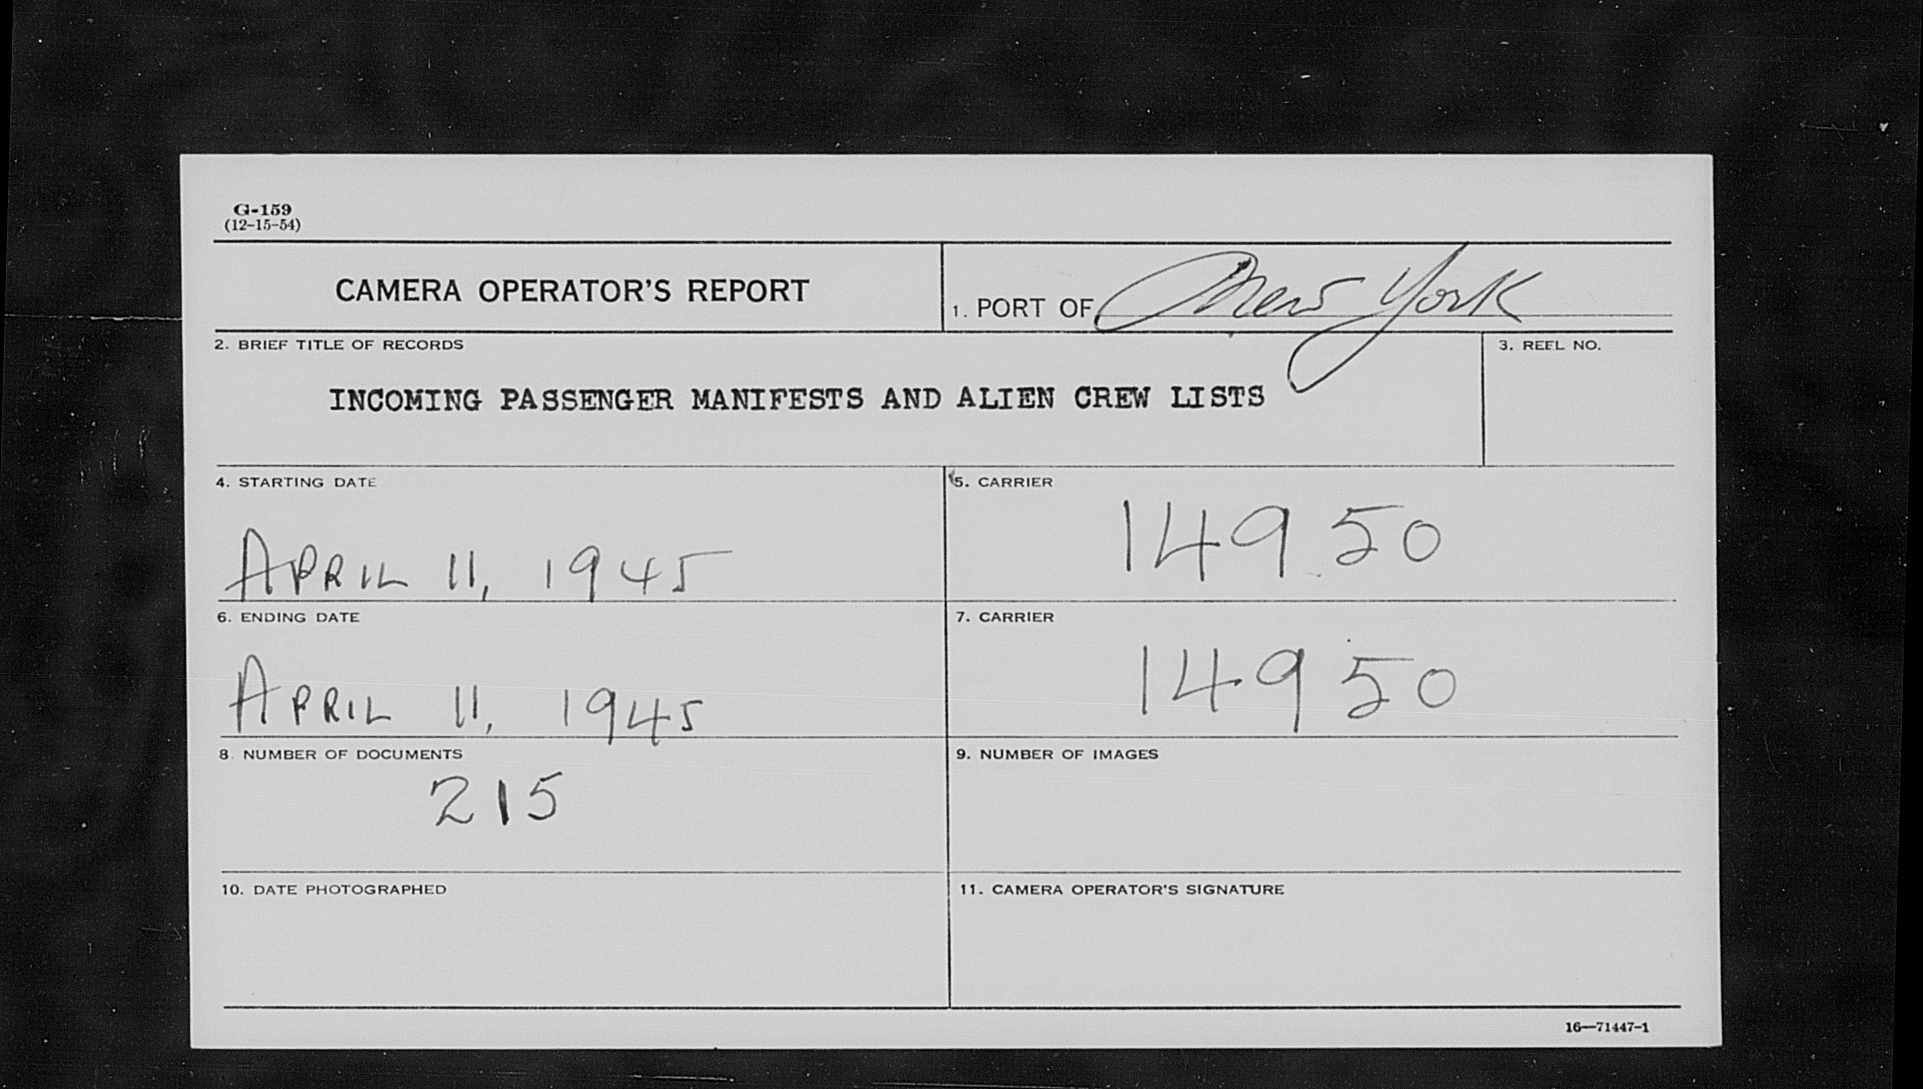 G-159
(12-15-54)
CAMERA OPERATOR'S REPORT
1. PORT OF New York
2. BRIEF TITLE OF RECORDS
3. REEL NO.
INCOMING PASSENGER MANIFESTS AND ALIEN CREW LISTS
4. STARTING DATE
5. CARRIER
APRIL 11, 1945
14950
6. ENDING DATE
7. CARRIER
APRIL 11, 1945
14950
8. NUMBER OF DOCUMENTS
9. NUMBER OF IMAGES
215
10. DATE PHOTOGRAPHED
11. CAMERA OPERATOR'S SIGNATURE
16—71447-1